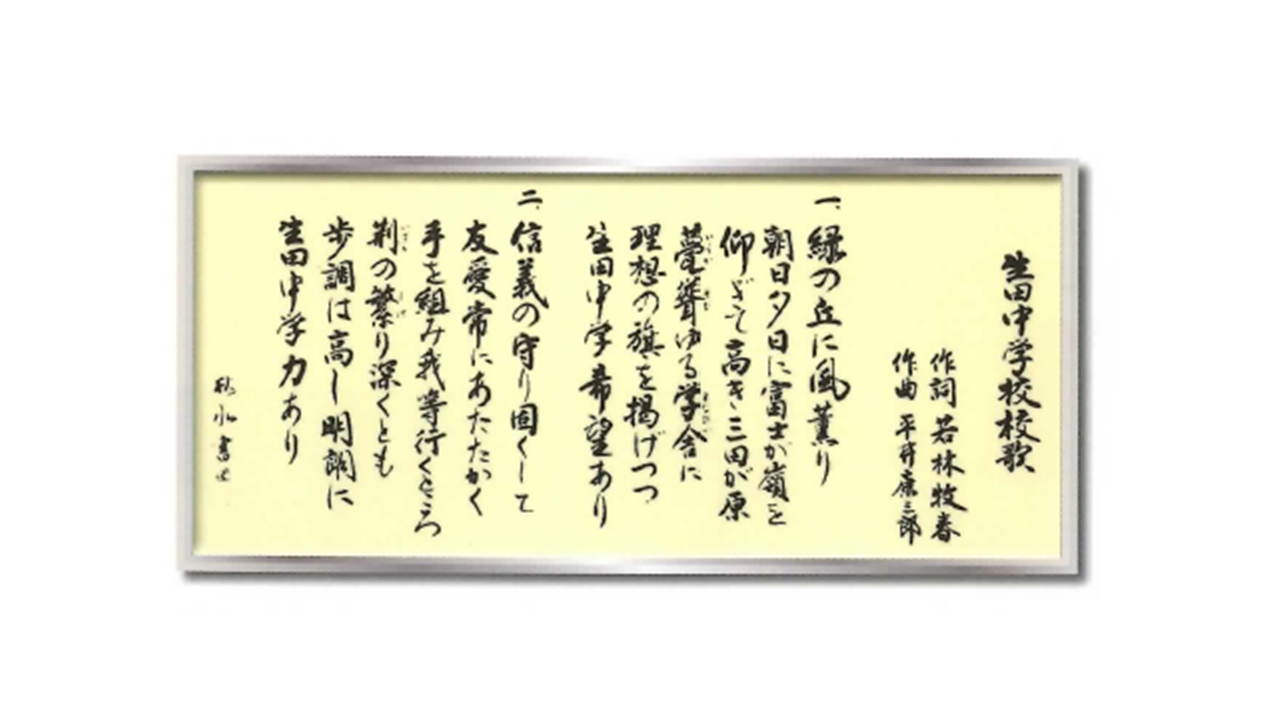 生田中学校校歌
作詞 若林牧春
作曲 平井康三郎
一、緑の丘に風薫り
朝日夕日に富士が嶺を
仰ぎて高き三田が原
甍聳ゆる学舎に
理想の旗を掲げつつ
生田中学希望あり
二、信義の守り固くして
友愛常にあたたかく
手を組み我等行くところ
荊の繁り深くとも
歩調は高し明朗に
生田中学力あり